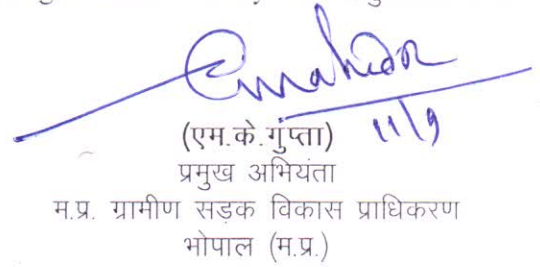 11/9
(एम.के.गुप्ता)
प्रमुख अभियंता
म.प्र. ग्रामीण सड़क विकास प्राधिकरण
भोपाल (म.प्र.)